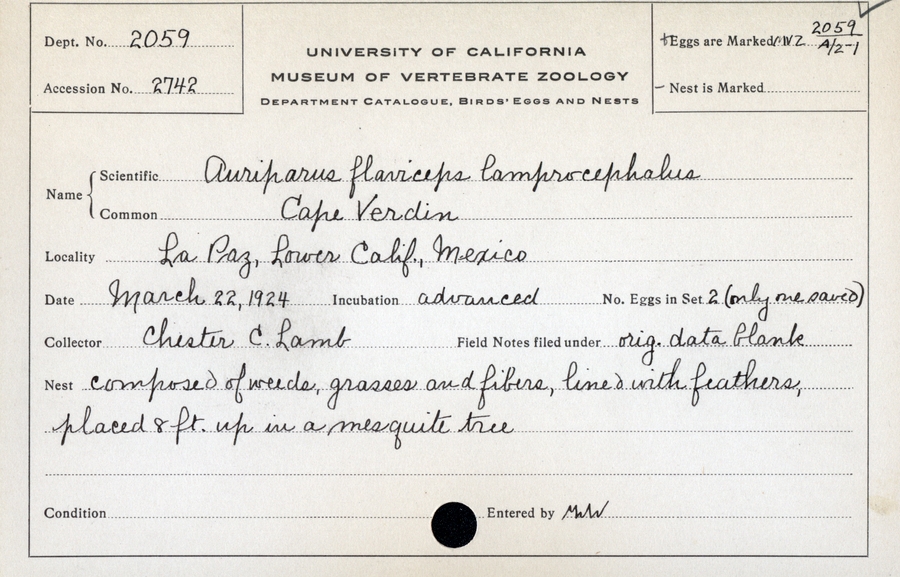 Dept. No. 2059
Accession No. 2742
UNIVERSITY OF CALIFORNIA
MUSEUM OF VERTEBRATE ZOOLOGY
DEPARTMENT CATALOGUE, BIRDS' EGGS AND NESTS
Eggs are Marked MVZ 2059 A/2-1
Nest is Marked
Name
Scientific Auriparus flaviceps lamprocephalus
Common Cape Verdin
Locality La Paz, Lower Calif., Mexico
Date March 22, 1924 Incubation advanced No. Eggs in Set 2 (only one saved)
Collector Chester C. Lamb Field Notes filed under orig. data blank
Nest composed of weeds, grasses and fibers, lined with feathers,
placed 8 ft. up in a mesquite tree
Condition Entered by